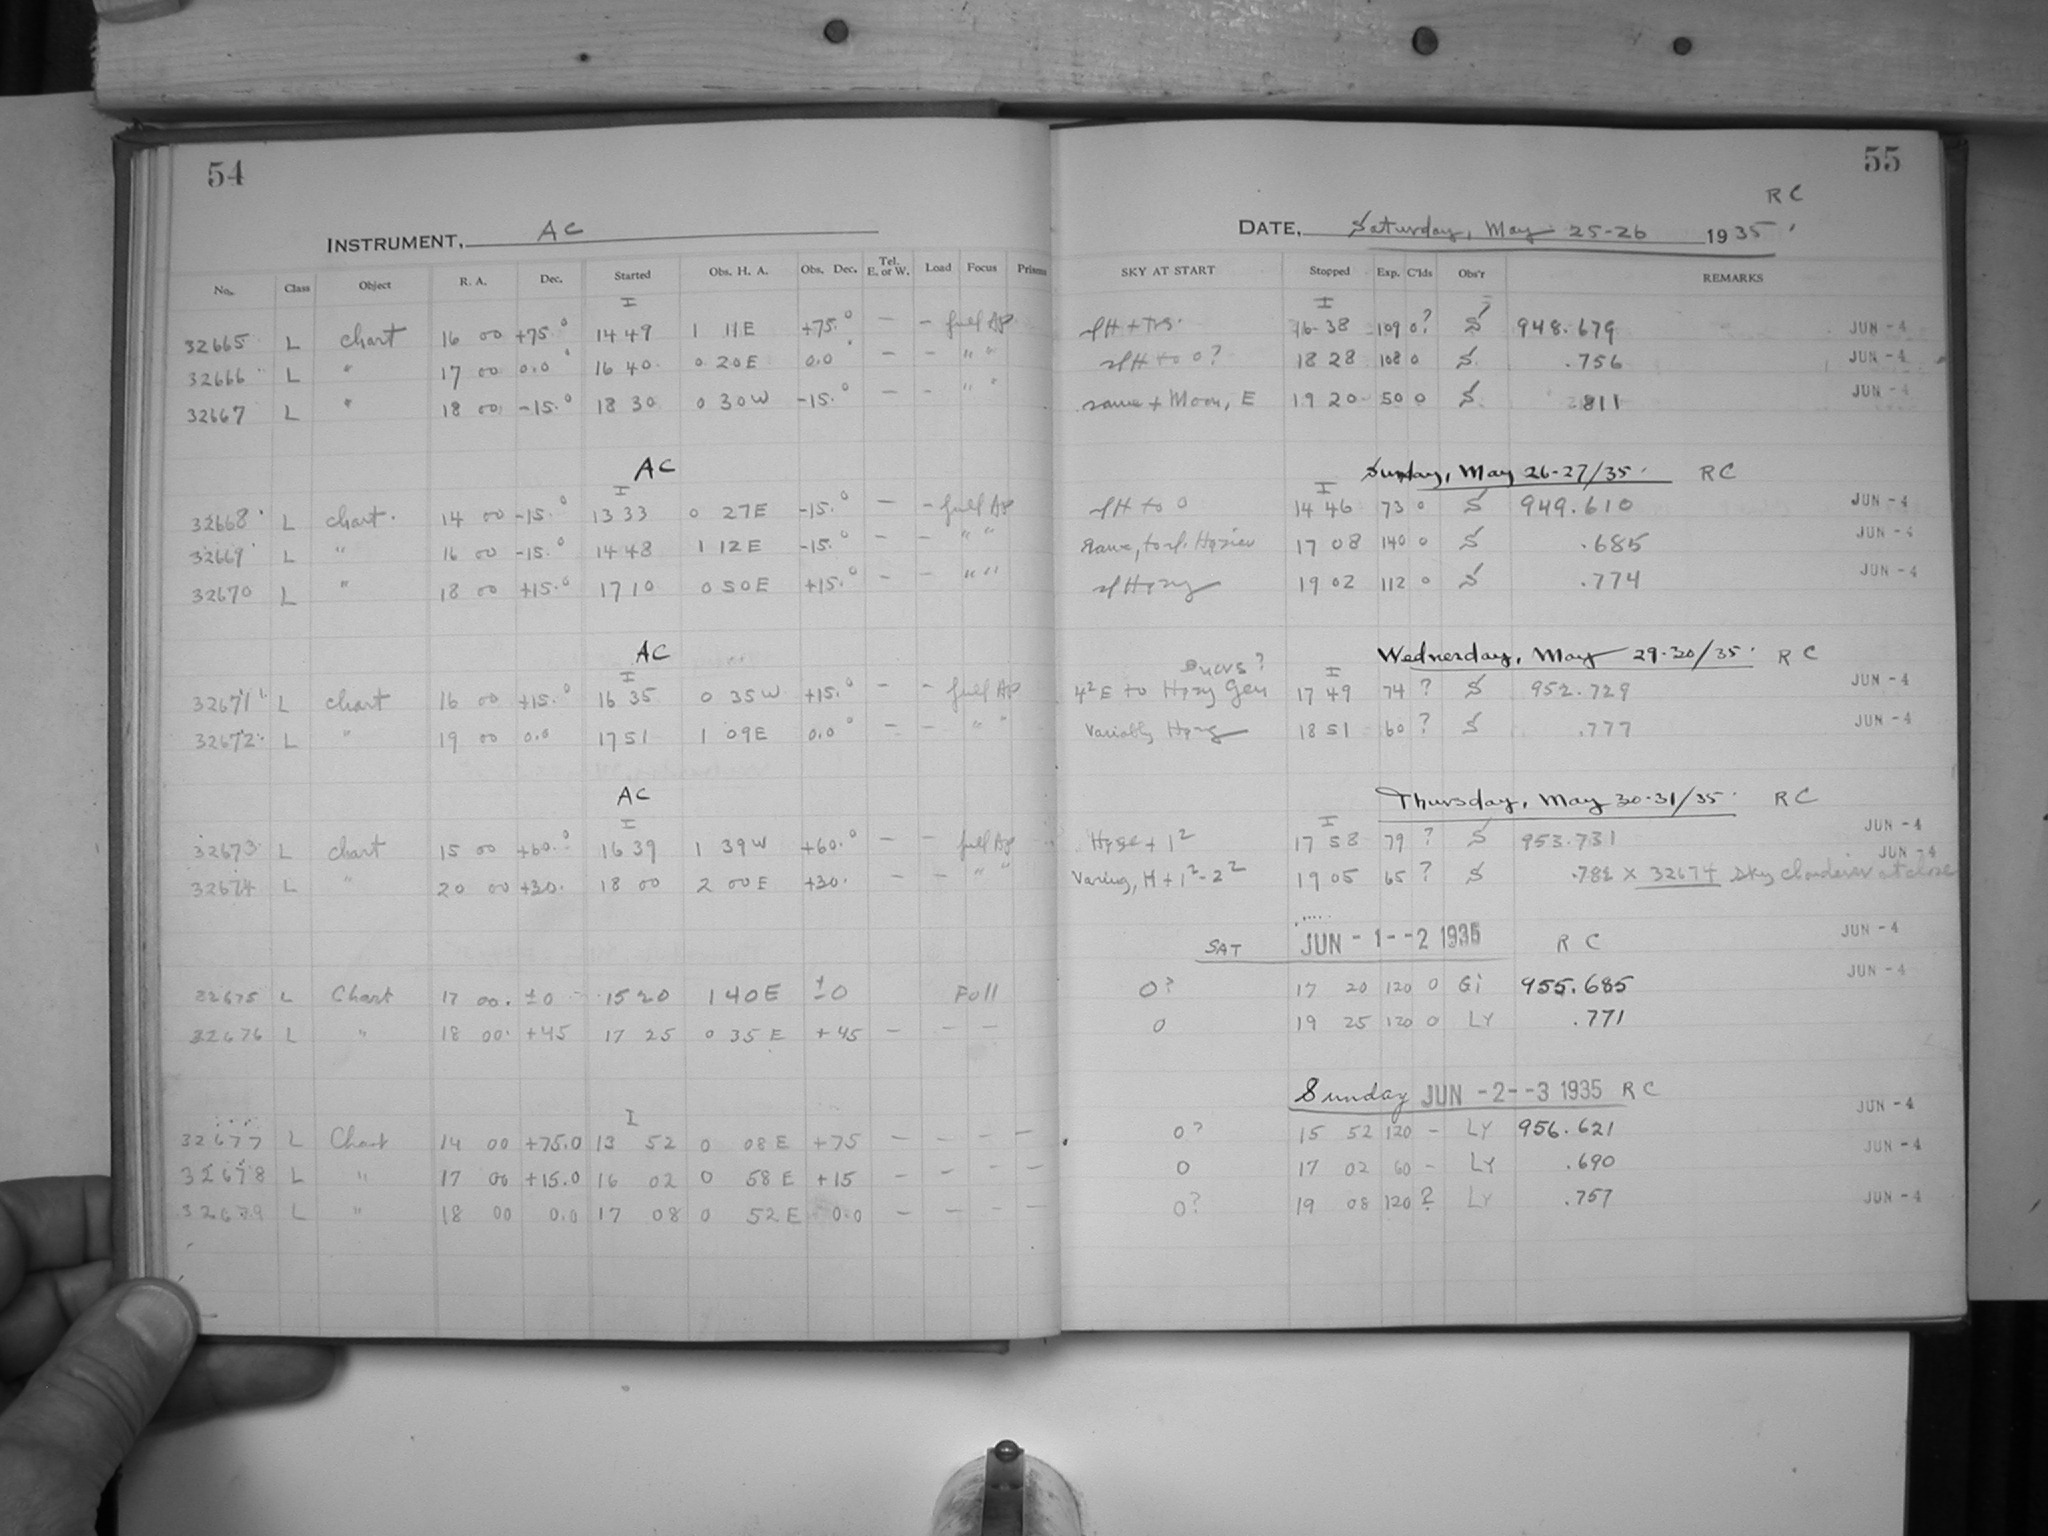 54
INSTRUMENT, AC
No. Class Object R. A. Dec. Started Obs. H. A. Obs. Dec. Tel. E. or W. Load Focus Prisms
I
32665 L Chart 16 00 +75.° 14 49 1 11E +75.° – – full Ap.
32666 L " 17 00 0.0° 16 40 0 20E 0.0° – – " "
32667 L " 18 00 -15.° 18 30 0 30W -15.° – – " "
AC
I
32668 L chart. 14 00 -15.° 13 33 0 27E -15.° – – full Ap
32669 L " 16 00 -15.° 14 48 1 12E -15.° – – " "
32670 L " 18 00 +15.° 17 10 0 50E +15.° – – " "
AC
I
32671 L chart 16 00 +15.° 16 35 0 35W +15.° – – full Ap
32672 L " 19 00 0.0 17 51 1 09E 0.0° – – " "
AC
I
32673 L chart 15 00 +60.° 16 39 1 39W +60.° – – full Ap
32674 L " 20 00 +30. 18 00 2 00E +30. – – " "
32675 L Chart 17 00. ±0 15 20 1 40E ±0 Full
32676 L " 18 00. +45 17 25 0 35E +45 – – –
I
32677 L Chart 14 00 +75.0 13 52 0 08E +75 – – – –
32678 L " 17 00 +15.0 16 02 0 58E +15 – – – –
32679 L " 18 00 0.0 17 08 0 52E 0.0 – – – –
55
RC
DATE, Saturday, May 25-26 1935
SKY AT START Stopped Exp. C'lds Obs'r REMARKS
I
16 38 109 0? S 948.679 JUN - 4
to 0? 18 28 108 0 S .756 JUN - 4
same + Moon, E 19 20 50 0 S .811 JUN - 4
Sunday, May 26-27/35. RC
I
to 0 14 46 73 0 S 949.610 JUN - 4
same, 17 08 140 0 S .685 JUN - 4
19 02 112 0 S .774 JUN - 4
Wednesday, May 29-30/35. RC
I
4²E to Hazy Gen 17 49 74 ? S 952.729 JUN - 4
Variably Hazy 18 51 60 ? S .777 JUN - 4
Thursday, May 30-31/35. RC
I
+ 1² 17 58 79 ? S 953.731 JUN - 4
Varing, H + 1²-2² 19 05 65 ? S .782 x 32674 Sky cloudier at close JUN - 4
SAT JUN -1--2 1935 RC JUN - 4
0? 17 20 120 0 Gi 955.685 JUN - 4
0 19 25 120 0 LY .771
Sunday JUN -2--3 1935 RC
0? 15 52 120 – LY 956.621 JUN - 4
0 17 02 60 – LY .690 JUN - 4
0? 19 08 120 ? LY .757 JUN - 4